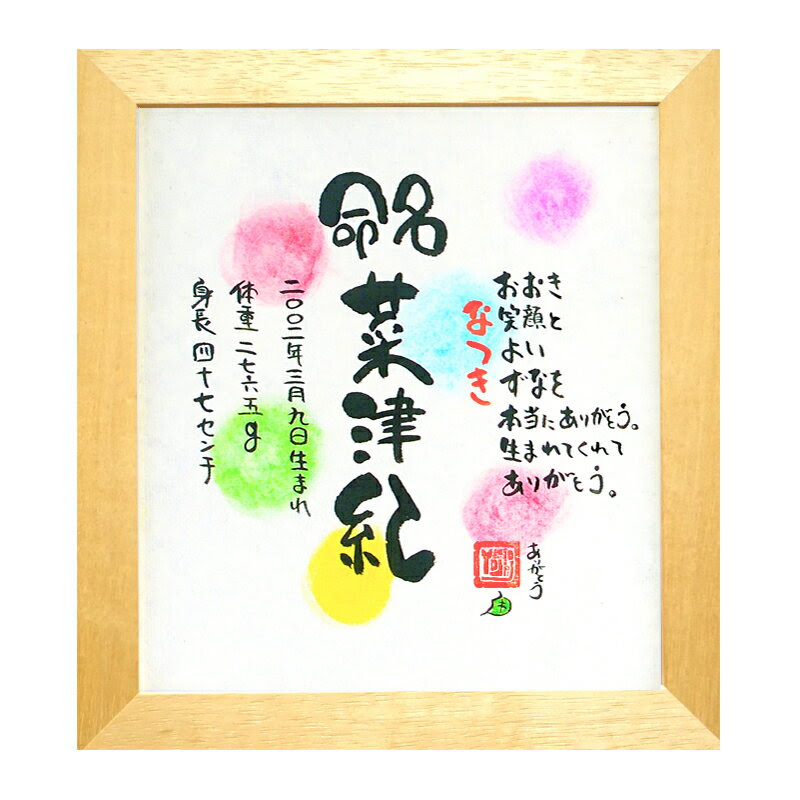 命名
菜津紀
二〇〇二年三月九日生まれ
体重二七六五g
身長四十七センチ
おおき
な笑顔と
つよい
きずなを
本当にありがとう。
生まれてくれて
ありがとう。